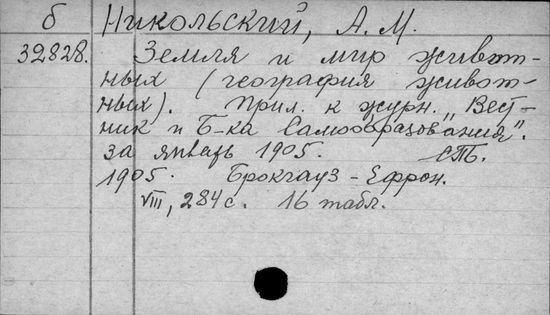 б Никольский, А. М.
32828. Земля и мир живот-
ных (география живот-
ных). Прил. к журн. „Вест-
ник и Б-ка Самообразования".
за январь 1905. СПб.
1905. Брокгауз-Ефрон.
VIII, 284 с. 16 табл.